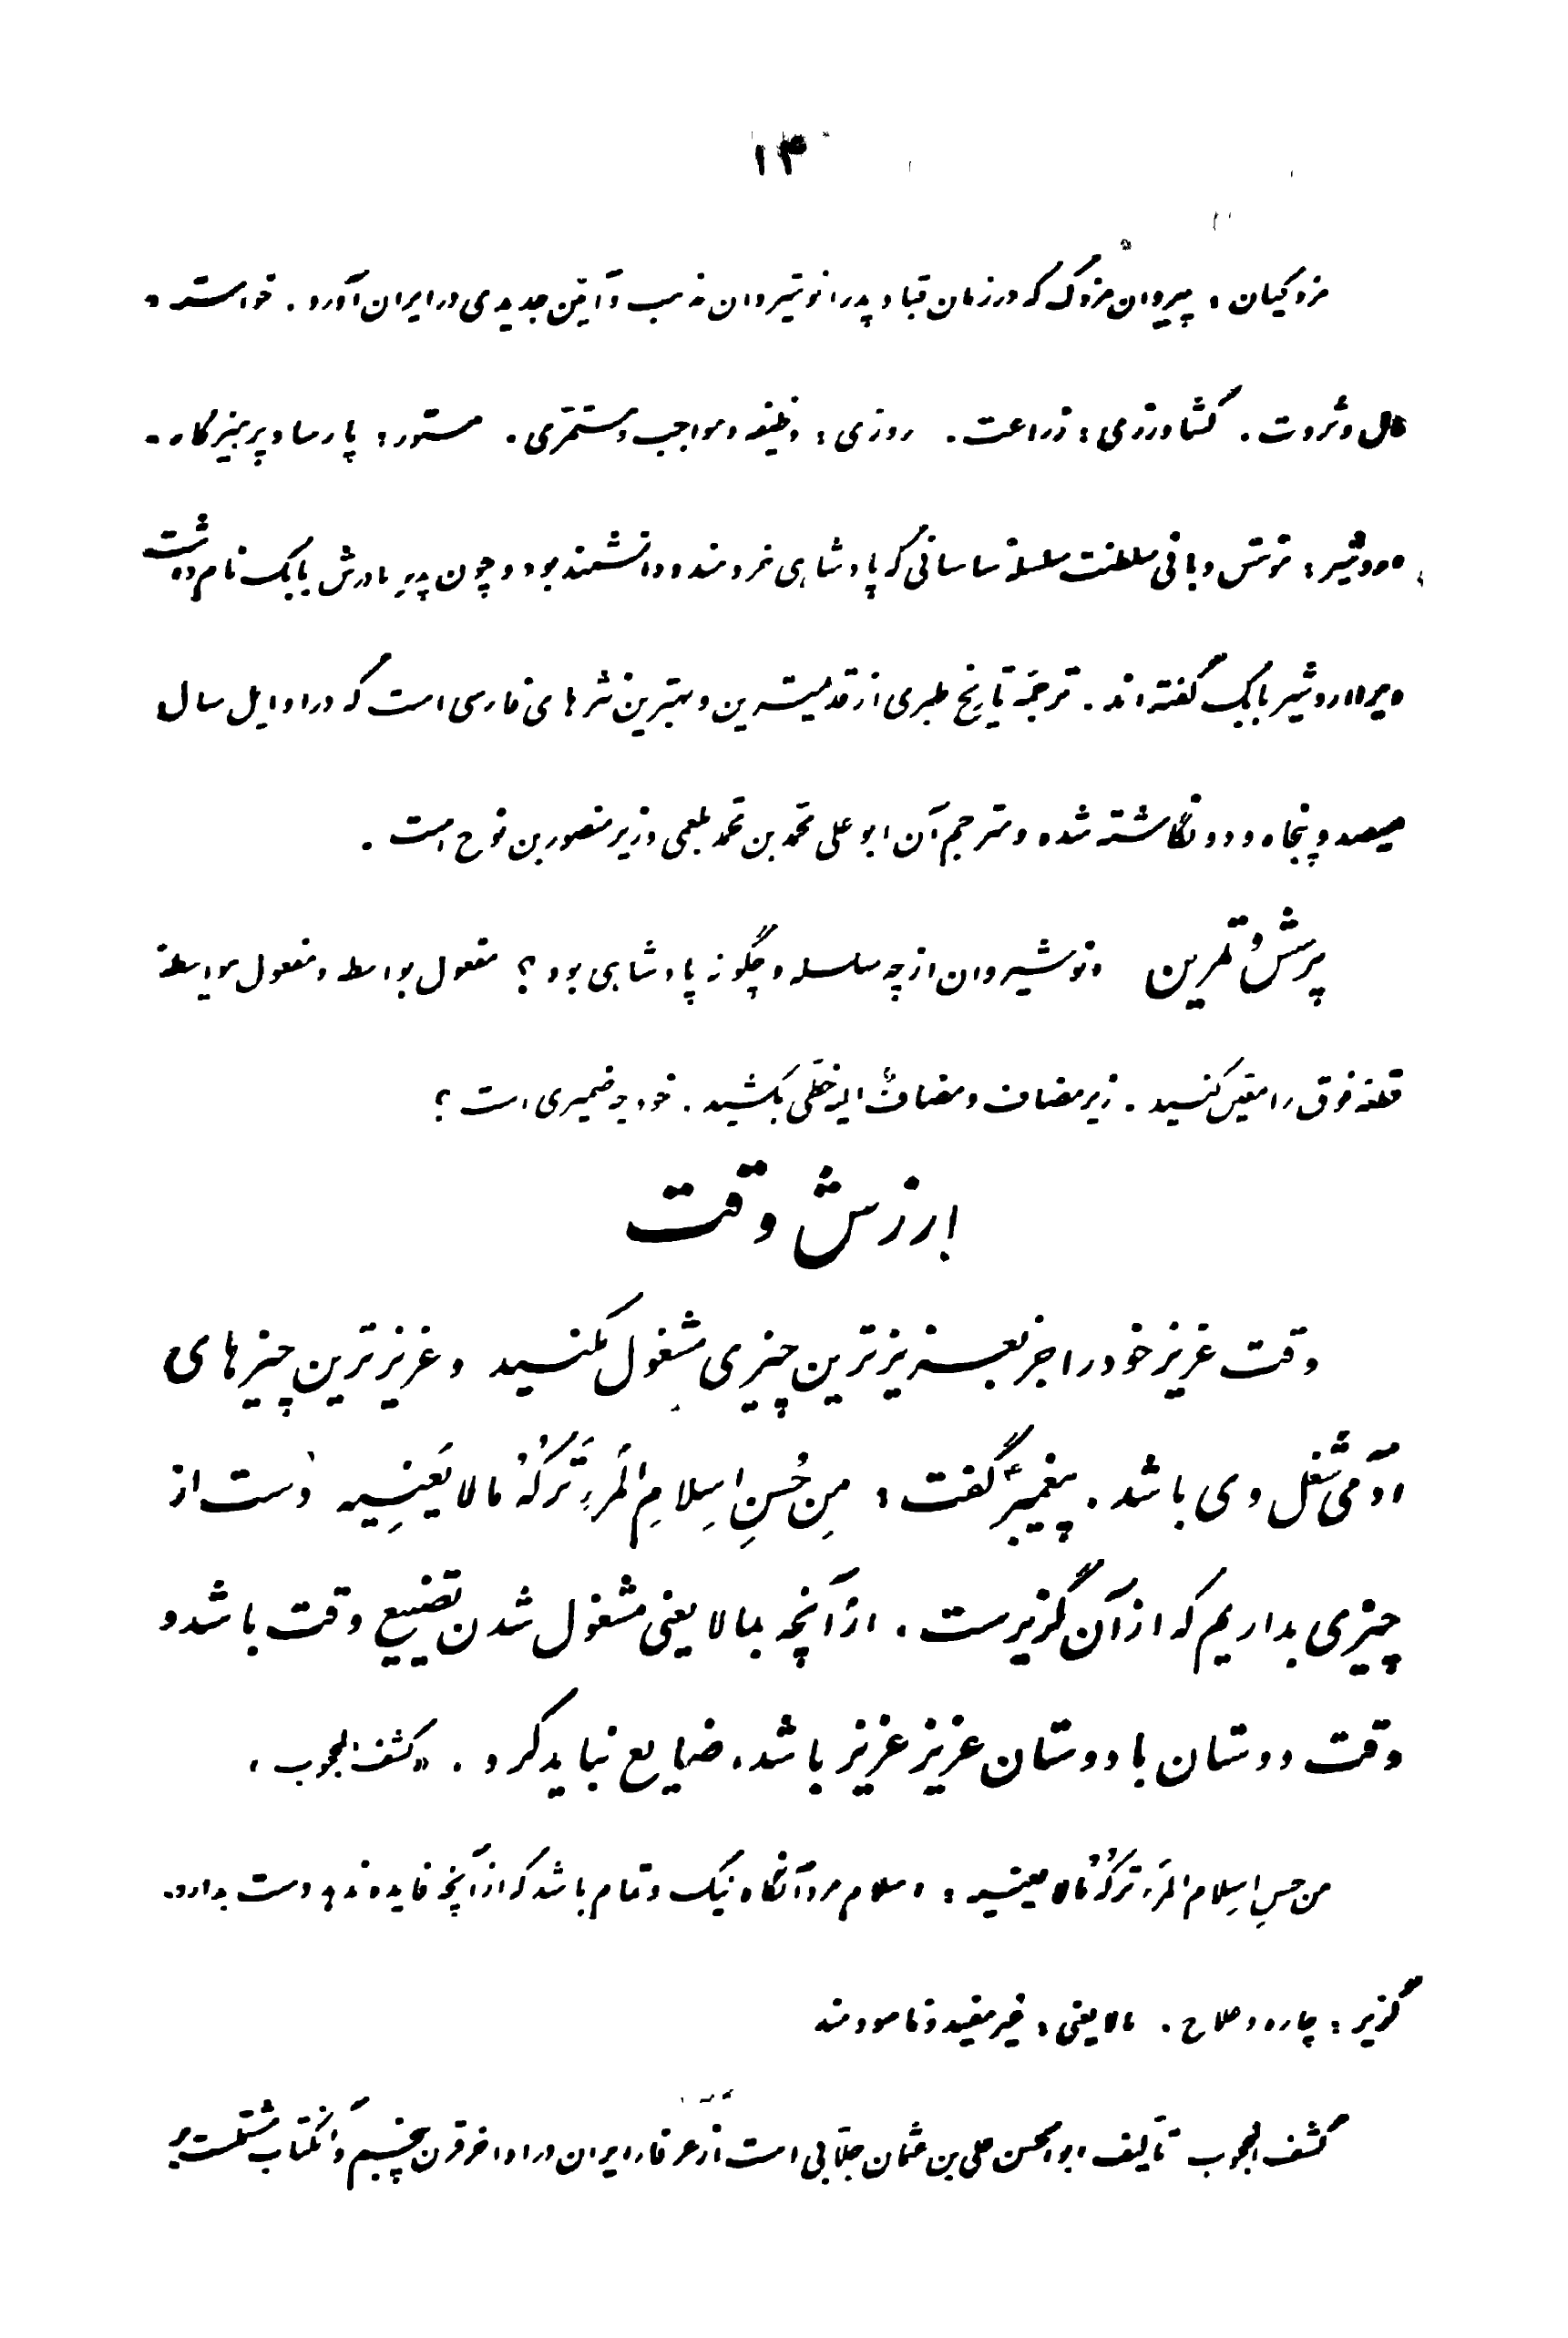 ۱۳
مزدکیان : پیروان مزدک که در زمان قباد پدر انوشیروان مذهب و آئین جدیدی در ایران آورد . خواسته :
مال و ثروت . کشاورزی : زراعت . روزی : وظیفه و مواجب و مستمری . مستور : پارسا و پرهیزکار .
اردشیر : مؤسس و بانی سلطنت سلسلهٔ ساسانی که پادشاهی خردمند و دانشمند بود و چون پدر مادرش بابک نام داشت
ویرا اردشیر بابک گفته اند . ترجمهٔ تاریخ طبری از قدیمترین و بهترین نثرهای فارسی است که در اوایل سال
سیصد و پنجاه و دو نگاشته شده و مترجم آن ابو علی محمد بن محمد بلعمی وزیر منصور بن نوح است .
پرسش و تمرین انوشیروان از چه سلسله و چگونه پادشاهی بود ؟ مفعول بواسطه و مفعول بیواسطهٔ
قطعهٔ فوق را معین کنید . زیر مضاف و مضاف الیه خطی بکشید . خود چه ضمیری است ؟
ارزش وقت
وقت عزیز خود را جز بعزیزترین چیزی مشغول مکنید و عزیزترین چیزهای
آدمی شغل وی باشد . پیغمبر گفت : مِن حُسنِ اِسلامِ المَرءِ تَرکُهُ مالا یَعنِیهِ دست از
چیزی بداریم که از آن گزیرست . از آنچه بمالا یعنی مشغول شدن تضییع وقت باشد و
وقت دوستان با دوستان عزیز عزیز باشد، ضایع نباید کرد . «کشف المحجوب»
من حسنِ اسلام المَرء تَرکُهُ مالا یعنیه : اسلام مرد آنگاه نیک و تمام باشد که از آنچه فایده ندهد دست بدارد.
گزیر : چاره و علاج . مالا یعنی : غیر مفید و ناسودمند
کشف المحجوب تألیف ابوالحسن علی بن عثمان جلابی است از عرفاء ایران در اواخر قرن پنجم و آنکتاب مشتملست بر